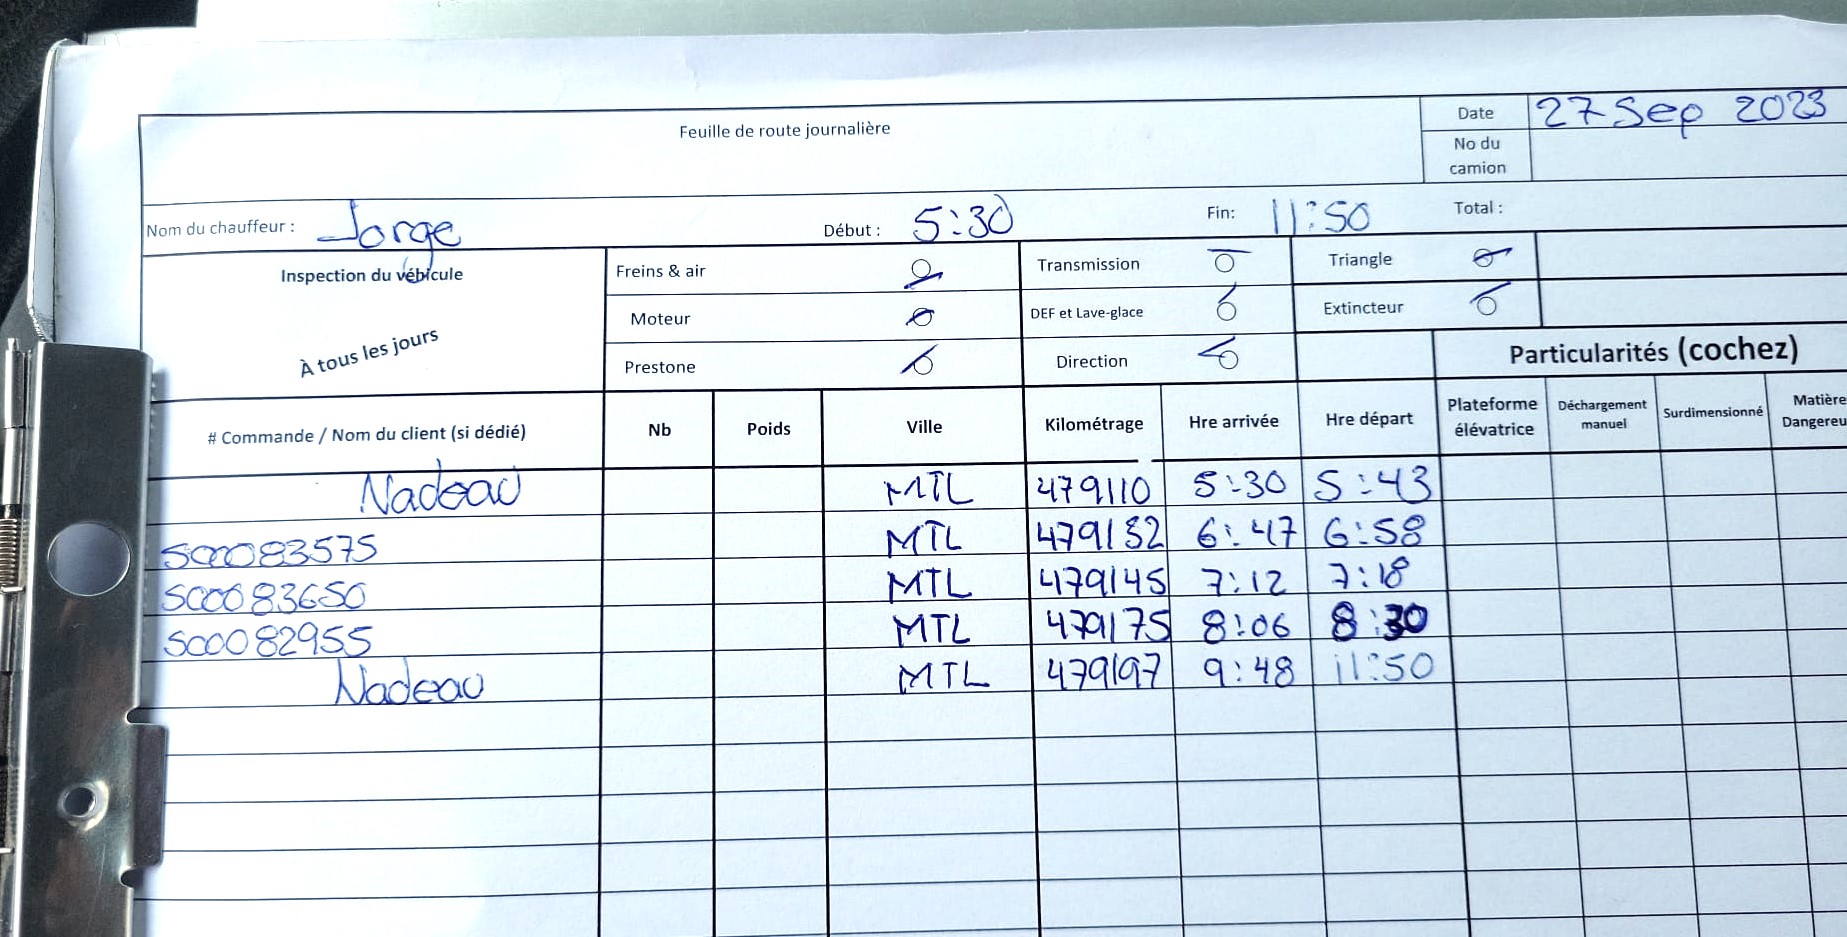 Feuille de route journalière
Date 27 Sep 2023
No du camion
Nom du chauffeur : Jorge Début : 5:30 Fin: 11:50 Total :
Inspection du véhicule
À tous les jours
Freins & air Transmission Triangle
Moteur DEF et Lave-glace Extincteur
Prestone Direction
Particularités (cochez)
# Commande / Nom du client (si dédié) Nb Poids Ville Kilométrage Hre arrivée Hre départ Plateforme élévatrice Déchargement manuel Surdimensionné Matière Dangereu
Nadeau MTL 479110 5:30 5:43
SO0083575 MTL 479132 6:47 6:58
SO0083650 MTL 479145 7:12 7:18
SO0082955 MTL 479175 8:06 8:30
Nadeau MTL 479197 9:48 11:50